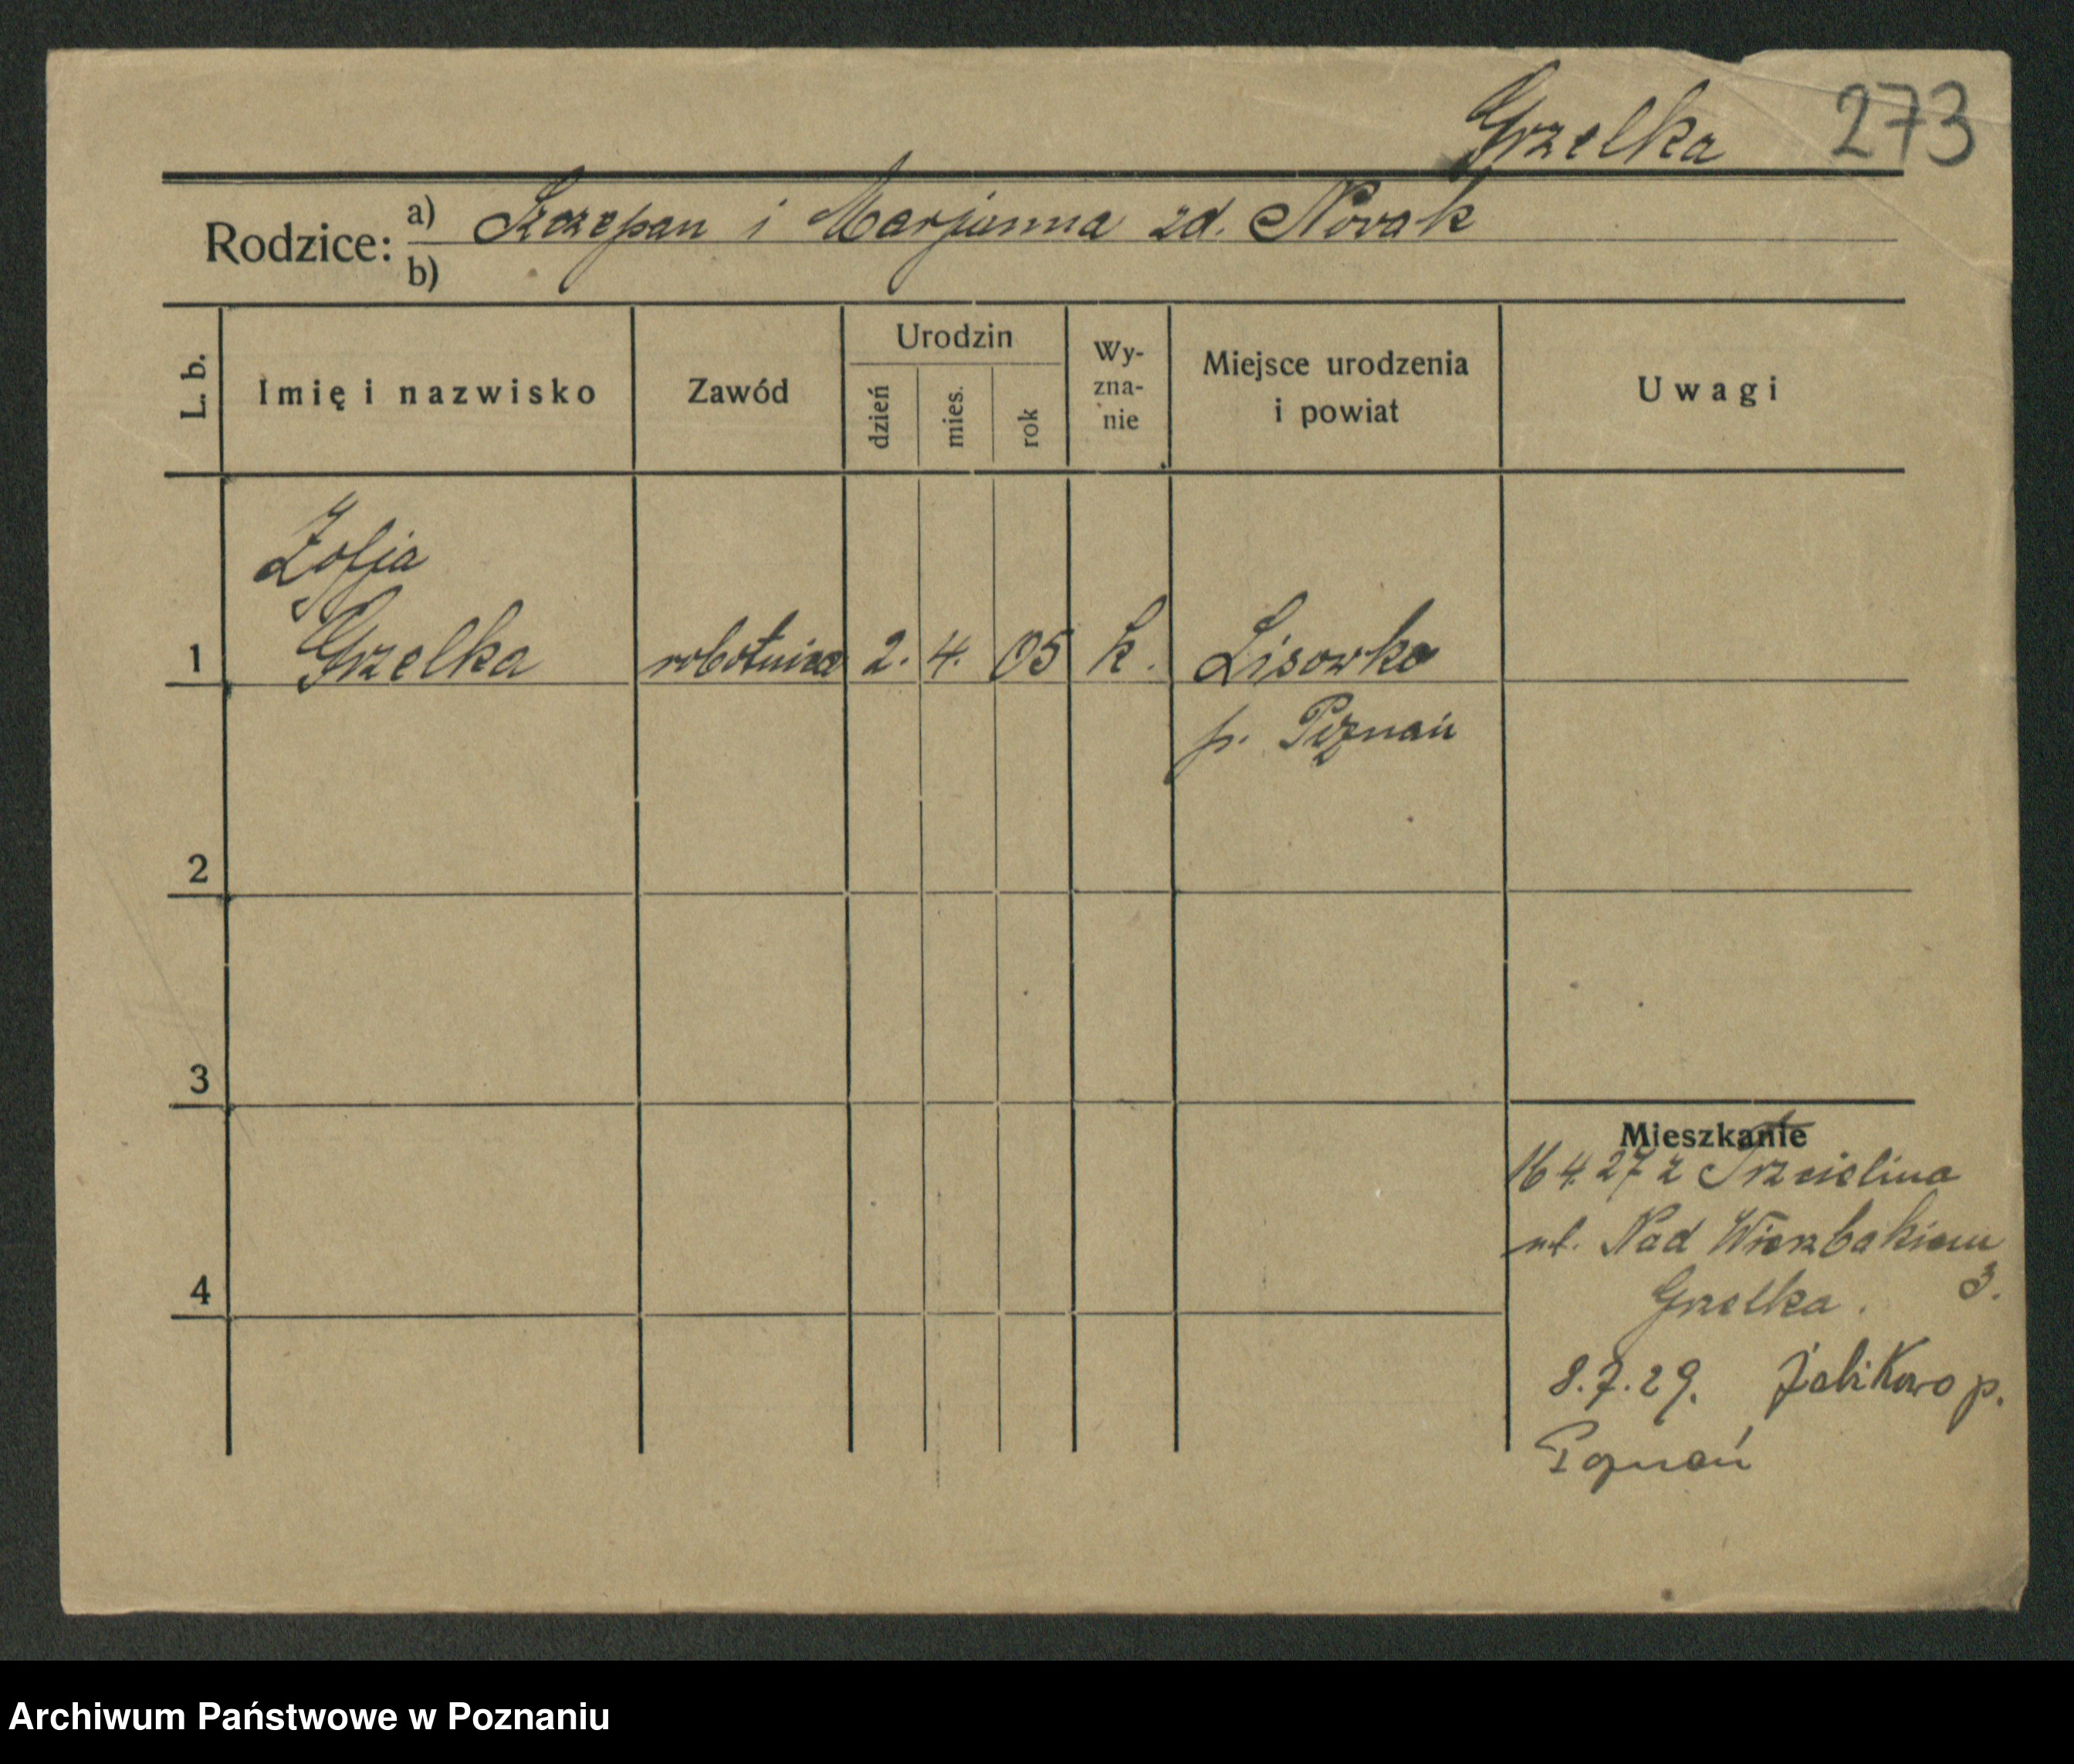 Grzelka 273
Rodzice: a) Szczepan i Marjanna zd. Nowak
b)
L. b. Imię i nazwisko Zawód Urodzin dzień mies. rok Wy-zna-nie Miejsce urodzenia i powiat Uwagi
Zofja
1 Grzelka robotnica 2. 4. 05 k. Lisowko
p. Poznań
2
3
Mieszkanie
16 4. 27 z Trzcielina
ul. Nad Wierzbakiem
4 Grzelka. 3.
8.7.29. Żabikowo p.
Poznań
Archiwum Państwowe w Poznaniu